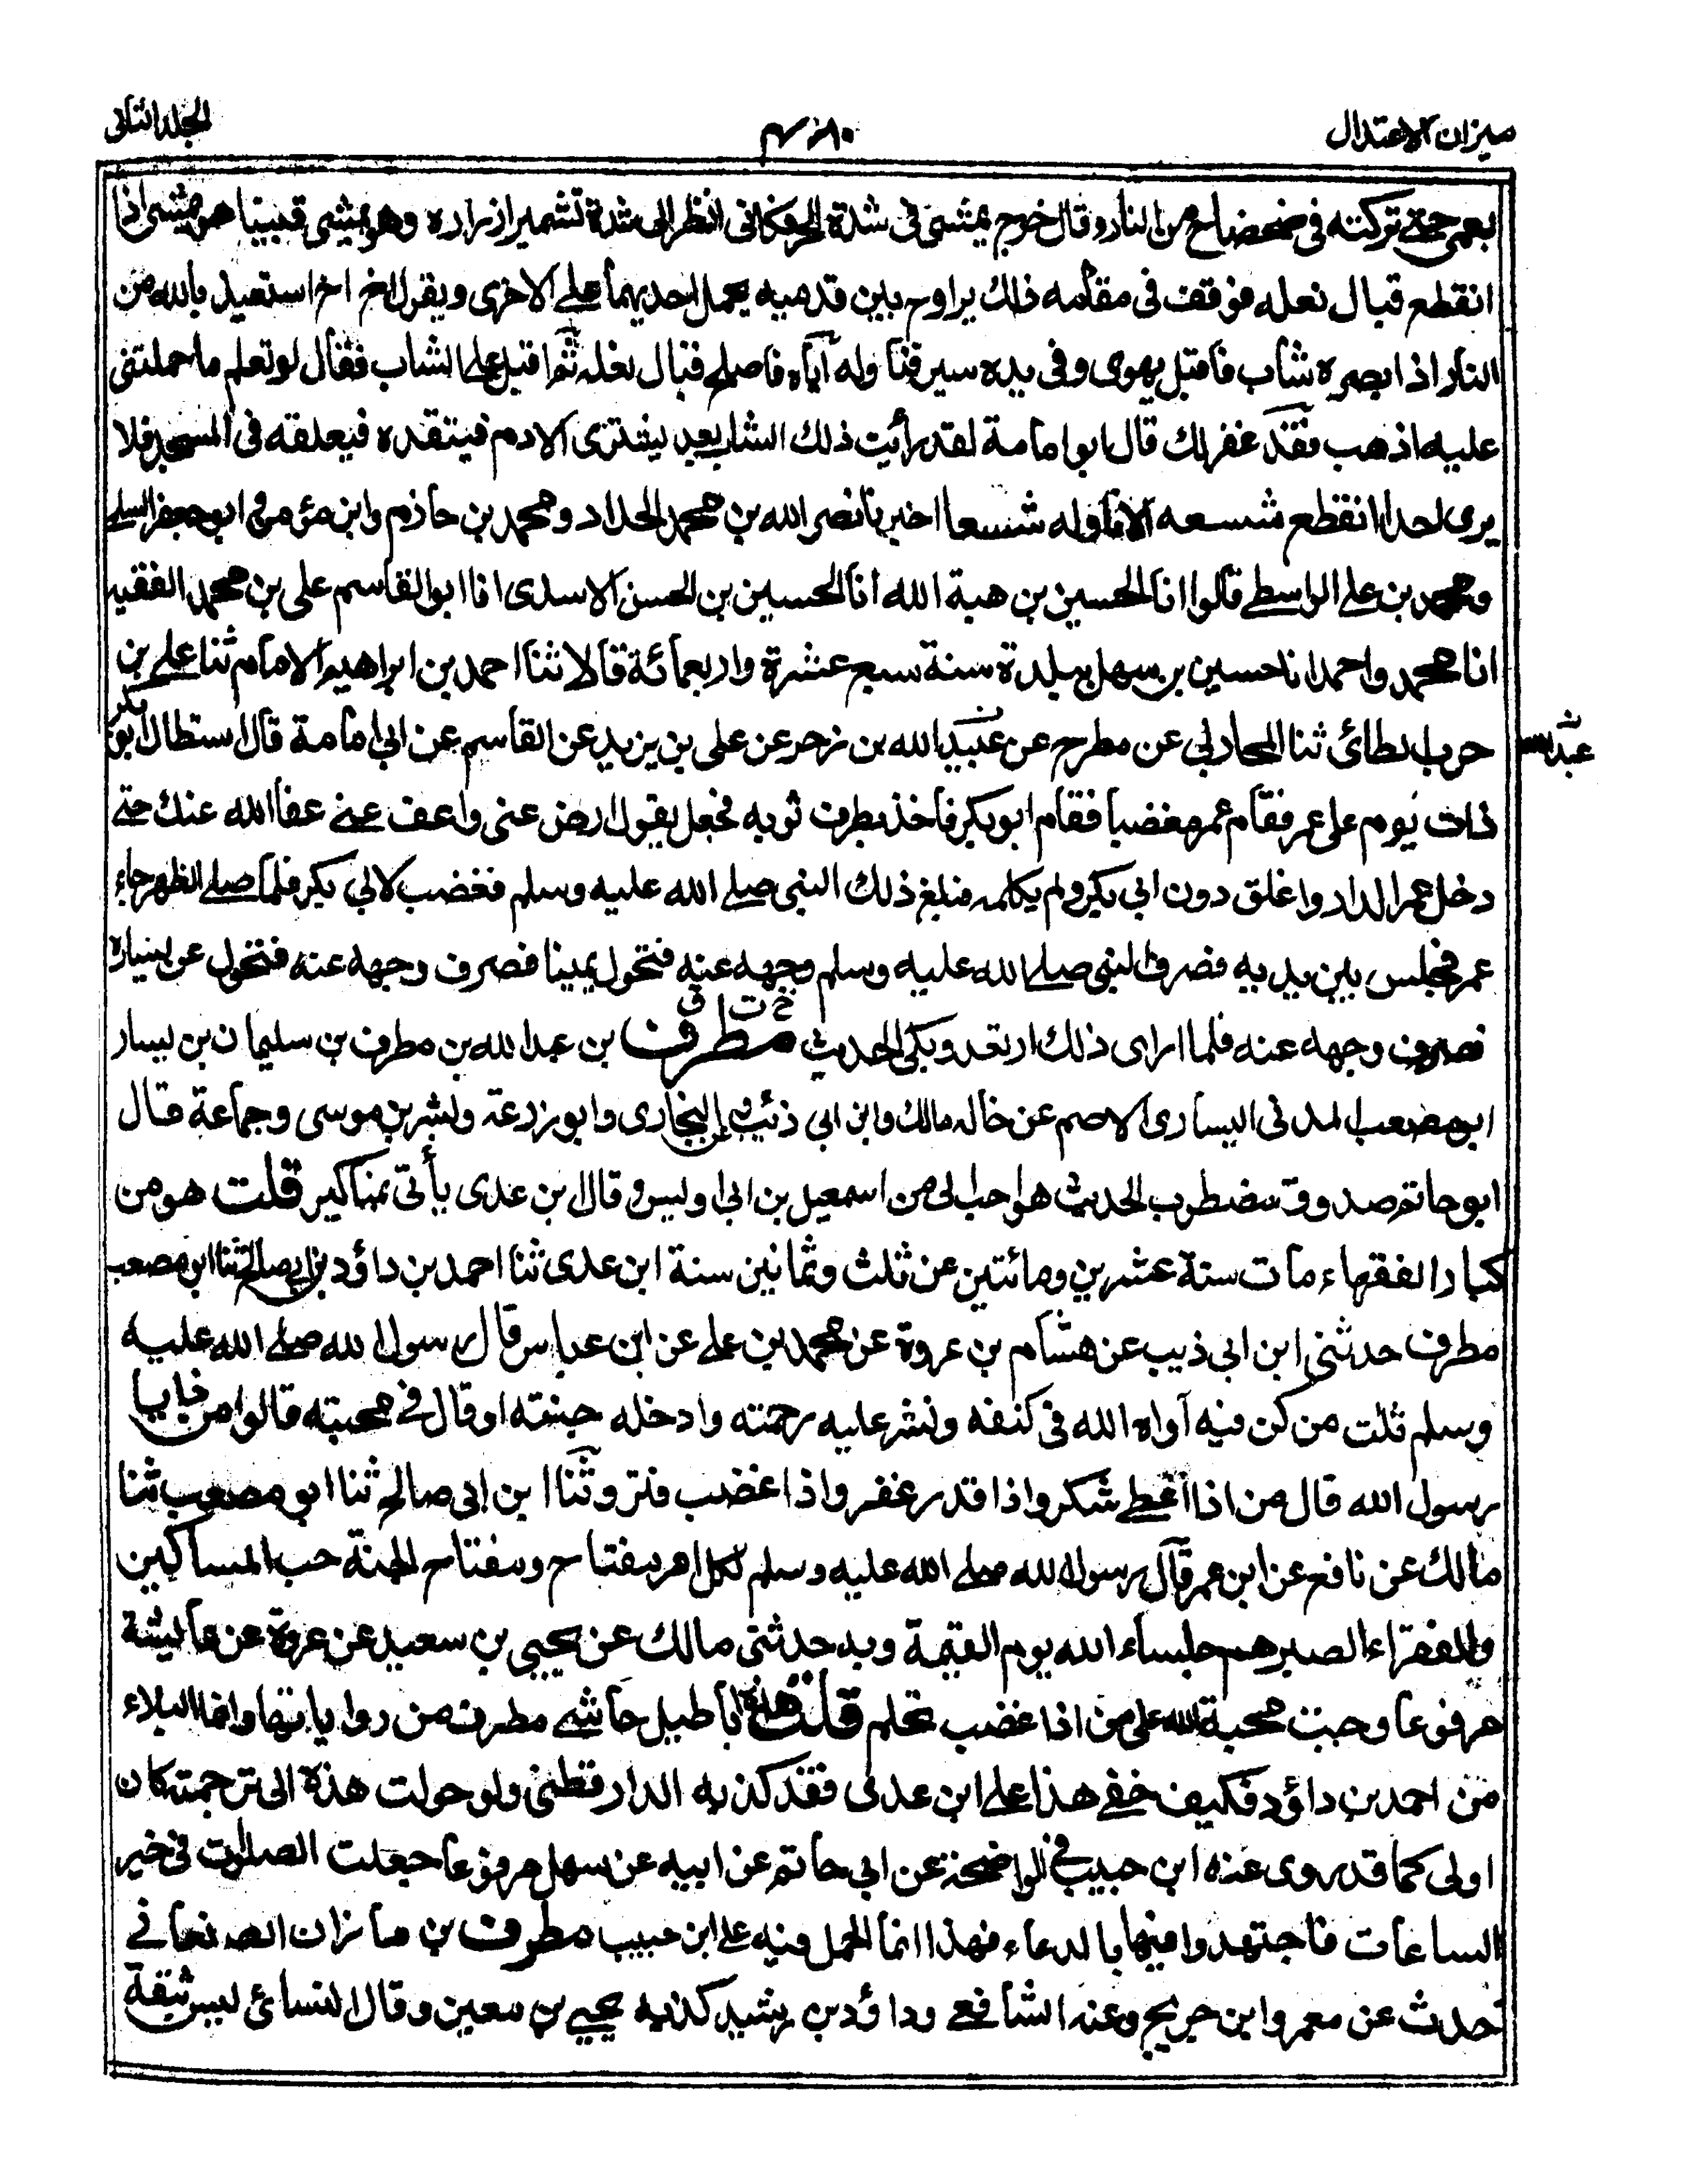 ميزان الاعتدال
الجلد الثانى
بعمى حتى تركته فى ضحضاح من النار وقال خرج يمشى فى شدة الحر فكانى انظر الى شدة تشمير ازراره وهو يمشى فبينا هو يمشى اذا
انقطع قبال نعله فوقف فى مقامه ذلك يراوح بين قدميه يحمل احديهما على الاخرى ويقول اخ اخ استعيذ بالله من
النار اذ ابصره شاب فاقبل يهوى وفى يده سير فناوله اياه فاصلح قبال نعله ثم اقبل على الشاب فقال لو تعلم ما حملتنى
عليه اذهب فقد غفر لك قال ابو امامة لقد رأيت ذلك الشاب بعد يشترى الادم فيتقده فيعلقه فى المسجد فلا
يرى احدا انقطع شسعه الا ناوله شسعا اخبرنا نصر الله بن محمد الحداد ومحمد بن حازم وابن مؤمن وابو جعفر السلمى
ومحمد بن على الواسطى قالوا انا الحسين بن هبة الله انا الحسين بن الحسن الاسدى انا ابو القاسم على بن محمد الفقيه
انا محمد واحمد انا حسين بن سهل ببلدة سنة سبع عشرة واربعمائة قالا ثنا احمد بن ابراهيم الامام ثنا على بن
حرب الطائى ثنا المحاربى عن مطرح عن عبيد الله بن زحر عن على بن يزيد عن القاسم عن ابى امامة قال استطال ابو بكر
عبد الله
ذات يوم على عمر فقام عمر مغضبا فقام ابو بكر فاخذ بطرف ثوبه فجعل يقول ارض عنى واعف عنى عفا الله عنك حتى
دخل عمر الدار واغلق دون ابى بكر ولم يكلمه فبلغ ذلك النبى صلى الله عليه وسلم فغضب لابى بكر فلما صلى الظهر جاء
عمر فجلس بين يديه فصرف النبى صلى الله عليه وسلم وجهه عنه فتحول يمينا فصرف وجهه عنه فتحول عن يساره
فصرف وجهه عنه فلما راى ذلك ارتعد وبكى الحديث مطرف خ ت ق بن عبد الله بن مطرف بن سليمان بن يسار
ابو مصعب المدنى اليسارى الاصم عن خاله مالك وابن ابى ذئب و البخارى وابو زرعة وبشر بن موسى وجماعة قال
ابو حاتم صدوق مضطرب الحديث هو احب الى من اسمعيل بن ابى اويس وقال ابن عدى يأتى بمناكير قلت هو من
كبار الفقهاء مات سنة عشرين ومائتين عن ثلث وثمانين سنة ابن عدى ثنا احمد بن داؤد بن ابى صالح ثنا ابو مصعب
مطرف حدثنى ابن ابى ذيب عن هشام بن عروة عن محمد بن على عن ابن عباس قال رسول الله صلى الله عليه
وسلم ثلث من كن فيه آواه الله فى كنفه ونشر عليه رحمته وادخله جنته او قال فى محبته قالوا من ذا يا
رسول الله قال من اذا اعطى شكر واذا قدر غفر واذا غضب فتر وثنا ابن ابى صالح ثنا ابو مصعب ثنا
مالك عن نافع عن ابن عمر قال رسول الله صلى الله عليه وسلم لكل امر مفتاح ومفتاح الجنة حب المساكين
والفقراء الصبر هم جلساء الله يوم القيمة وبه حدثنى مالك عن يحيى بن سعيد عن عروة عن عايشة
مرفوعا وجبت محبة الله على من اذا غضب تحلم قلت هذه اباطيل حاشى مطرف من رواياتها وانما البلاء
من احمد بن داؤد فكيف خفى هذا على ابن عدى فقد كذبه الدارقطنى ولو حولت هذه الى ترجمته كان
اولى كما قد روى عنه ابن حبيب فى الواضحة عن ابى حاتم عن ابيه عن سهل مرفوعا جعلت الصلوات فى خير
الساعات فاجتهدوا فيها بالدعاء فهذا انما الحمل فيه على ابن حبيب مطرف بن مازن الصنعانى
حدث عن معمر وابن جريج وعنه الشافعى وداؤد بن رشيد كذبه يحيى بن معين وقال النسائى ليس بثقة